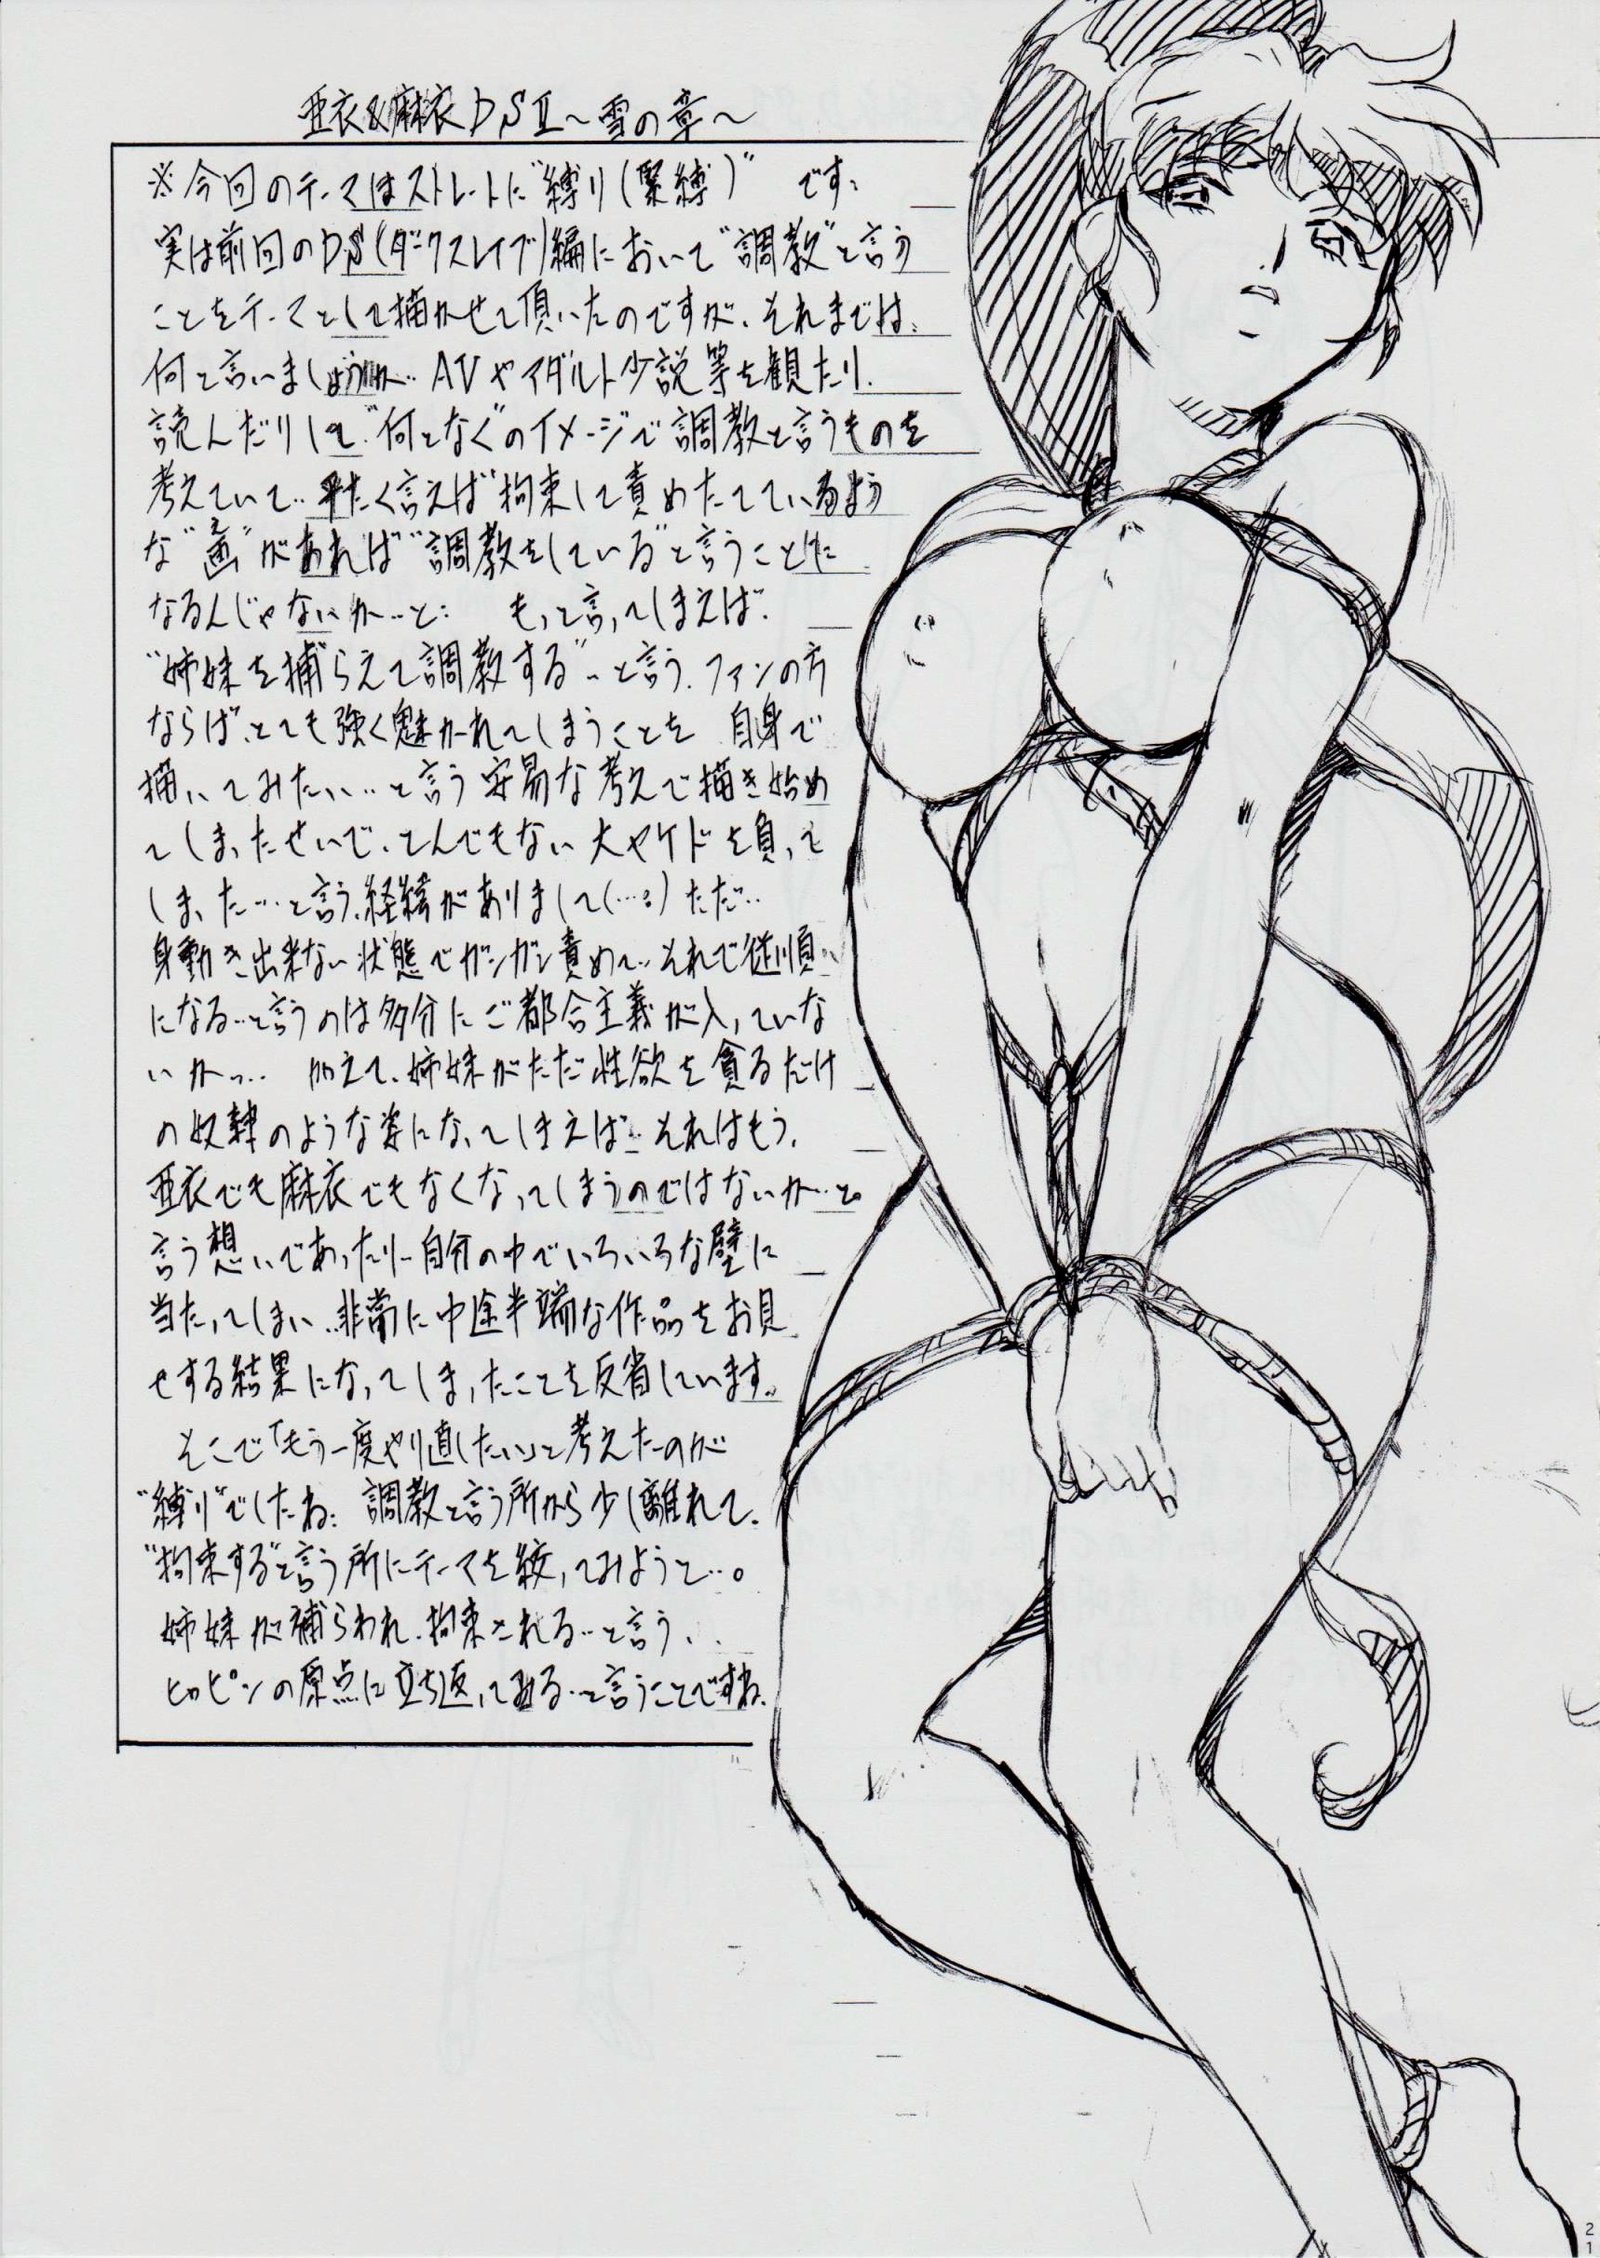 亜衣&麻衣DSⅡ～雪の章～
※今回のテーマはストレートに"縛り(緊縛)"です…
実は前回のDS(ダークスレイブ)編において"調教"と言う
ことをテーマとして描かせて頂いたのですが、それまでは…
何と言いましょうか… AVやアダルト小説等を観たり、
読んだりして、"何となく"のイメージで調教と言うものを
考えていて… 平たく言えば"拘束して責めたてているよう
な"画"があれば"調教をしている"と言うことに
なるんじゃないか…と… もっと言ってしまえば、
"姉妹を捕らえて調教する"…と言う、ファンの方
ならば、とても強く魅かれてしまうことを 自身で
描いてみたい…と言う安易な考えで描き始め
てしまったせいで、とんでもない大ヤケドを負って
しまった…と言う、経緯がありまして(…。) ただ…
身動き出来ない状態でガンガン責めて…それで従順
になる…と言うのは多分にご都合主義が入っていな
いかっ… 加えて、姉妹がただ性欲を貪るだけ
の奴隷のような姿になってしまえば… それはもう、
亜衣でも麻衣でもなくなってしまうのではないか…と。
言う想いであったり…自分の中でいろいろな壁に
当たってしまい…非常に中途半端な作品をお見
せする結果になってしまったことを反省しています。
そこで「もう一度やり直したい」と考えたのが
"縛り"でしたね… 調教と言う所から少し離れて、
"拘束する"と言う所にテーマを絞ってみようと…。
姉妹が捕らわれ、拘束される…と言う、
ヒロピンの原点に立ち返ってみる…と言うことですね。
21